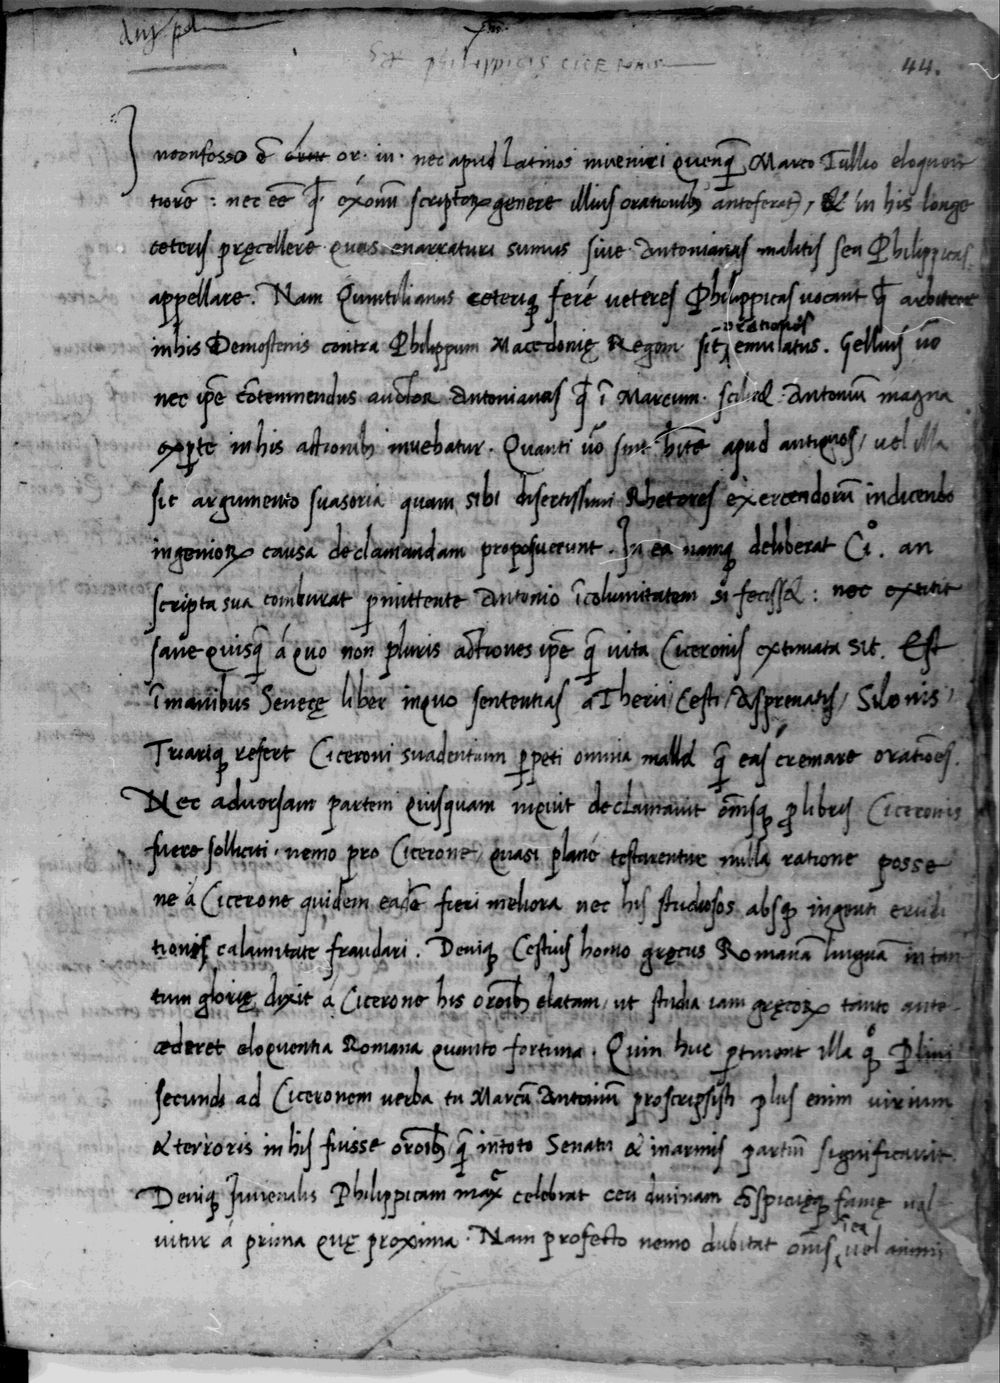 44.
philippicis ciceronis
In confesso ẽ or. iu. nec apud Latinos inveniri quenq̃ Marco Tullio eloquen
tiorẽ : nec eẽ q̃ ex omnũ scriptoꝝ genere illius orationibꝫ anteferat, & in his longe
ceteris pręcellere quas enarraturi sumus sive Antonianas malitis seu Philippicas
appellare. Nam Quintilianus ceteriqꝫ feré veteres Philippicas vocant q̃ arbitror
in his Demostenis contra Philippum Macedonię Regem sit orationes emulatus. Gellius ṽo
nec ip̃e cõtemnendus auctor Antonianas q̃ ĩ Marcum scilicet Antoniũ magna
ex ꝑte in his actionibꝫ invebatur. Quanti ṽo sint hĩte apud antiquos, vel illa
sit argumento suasoria quam sibi disertissimi Rhetores exercendorũ in dicendo
ingenioꝝ causa declamandam proposuerunt. In ea namqꝫ deliberat Ciº. an
scripta sua comburat ꝑmittente Antonio ĩcolumitatem si fecisset : nec extitit
sane quisq̃ á quo non pluris actiones ip̃e q̃ vita Ciceronis extimata sit. Est
ĩ manibus Senecę liber in quo sententias a Therii, Cesti, Asprenatis, Silonis,
Triariqꝫ refert Ciceroni suadentium ꝑpeti omnia mallet q̃ eas cremare oratiões.
Nec adversam partem quisquam inquit declamavit om̃sqꝫ ꝓ libris Ciceronis
fuere solliciti. nemo pro Cicerone, quasi plané testarentur nulla ratione posse
ne á Cicerone quidem eadẽ fieri meliora nec his studiosos absqꝫ ingenti erudi
tionis calamitate fraudari. Deniqꝫ Cestius homo gręcus Romanã linguã in tan
tum glorię dixit á Cicerone his orõibꝫ elatam, ut studia iam gręcoꝝ tanto ante
cederet eloquentia Romana quanto fortuna. Quin huc ꝑtinent illa qꝫ Plini
secundi ad Ciceronem verba tu Marcũ Antoniũ proscripsisti plus enim virium
& terroris in his fuisse orõibꝫ q̃ in toto Senatu & in armis partiũ significavit.
Deniqꝫ Juvenalis Philippicam maxĩe celebrat ceu divinam cõspicuęqꝫ famę vol
vitur á prima quę proxima. Nam profecto nemo dubitat om̃s vel animi